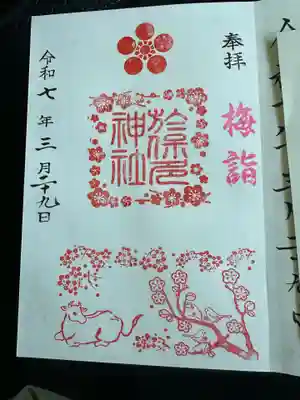 奉拝
梅詣
神社
令和七年三月二十九日